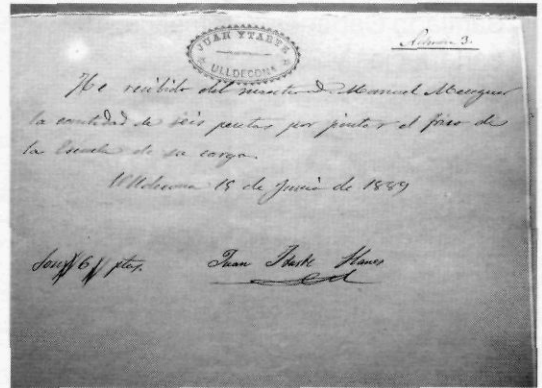 JUAN YTARTE
ULLDECONA
3.
He recibido del maestro D. Manuel Meseguer
la cantidad de seis pesetas por pintar el friso de
la Escuela de su cargo.
Ulldecona 15 de Junio de 1889
Son 6 ptas.
Juan Itarte